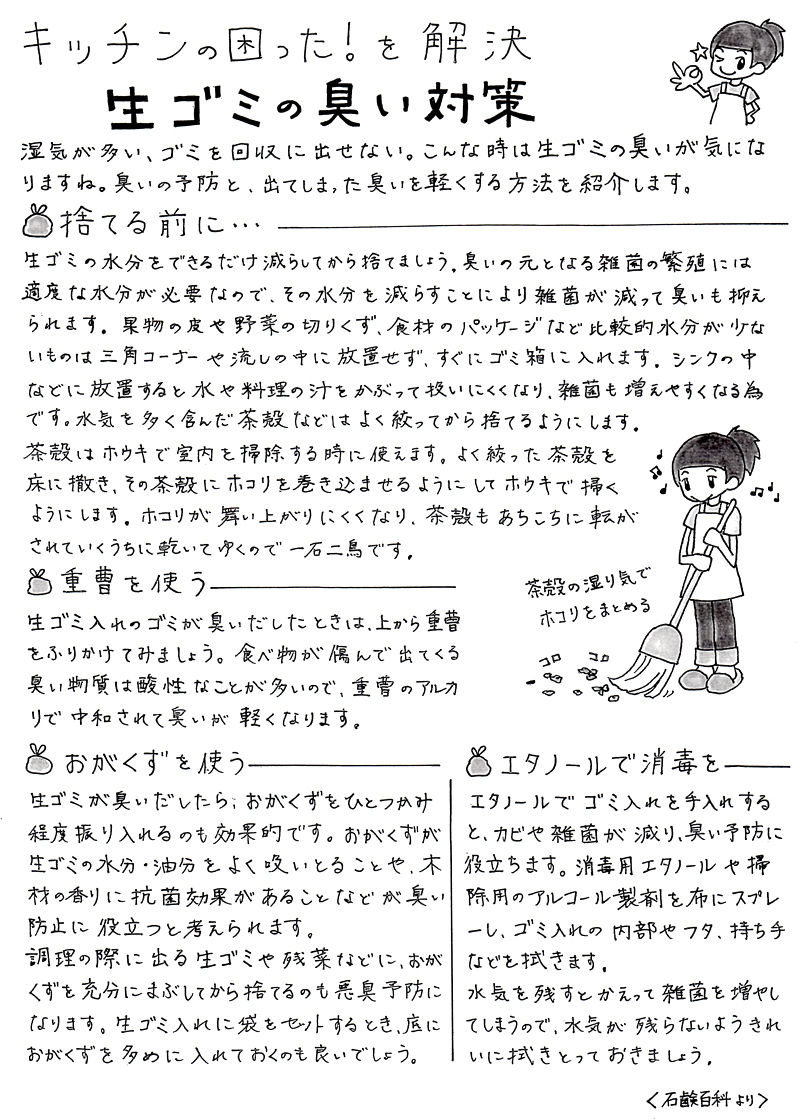 キッチンの困った!を解決
生ゴミの臭い対策
湿気が多い、ゴミを回収に出せない。こんな時は生ゴミの臭いが気にな
りますね。臭いの予防と、出てしまった臭いを軽くする方法を紹介します。
捨てる前に…
生ゴミの水分をできるだけ減らしてから捨てましょう。臭いの元となる雑菌の繁殖には
適度な水分が必要なので、その水分を減らすことにより雑菌が減って臭いも抑え
られます。果物の皮や野菜の切りくず、食材のパッケージなど比較的水分が少な
いものは三角コーナーや流しの中に放置せず、すぐにゴミ箱に入れます。シンクの中
などに放置すると水や料理の汁をかぶって扱いにくくなり、雑菌も増えやすくなる為
です。水気を多く含んだ茶殻などはよく絞ってから捨てるようにします。
茶殻はホウキで室内を掃除する時に使えます。よく絞った茶殻を
床に撒き、その茶殻にホコリを巻き込ませるようにしてホウキで掃く
ようにします。ホコリが舞い上がりにくくなり、茶殻もあちこちに転が
されていくうちに乾いてゆくので一石二鳥です。
茶殻の湿り気で
ホコリをまとめる
コロ コロ
重曹を使う
生ゴミ入れのゴミが臭いだしたときは、上から重曹
をふりかけてみましょう。食べ物が傷んで出てくる
臭い物質は酸性なことが多いので、重曹のアルカ
リで中和されて臭いが軽くなります。
おがくずを使う
生ゴミが臭いだしたら、おがくずをひとつかみ
程度振り入れるのも効果的です。おがくずが
生ゴミの水分・油分をよく吸いとることや、木
材の香りに抗菌効果があることなどが臭い
防止に役立つと考えられます。
調理の際に出る生ゴミや残菜などに、おが
くずを充分にまぶしてから捨てるのも悪臭予防に
なります。生ゴミ入れに袋をセットするとき、底に
おがくずを多めに入れておくのも良いでしょう。
エタノールで消毒を
エタノールでゴミ入れを手入れする
と、カビや雑菌が減り、臭い予防に
役立ちます。消毒用エタノールや掃
除用のアルコール製剤を布にスプレ
ーし、ゴミ入れの内部やフタ、持ち手
などを拭きます。
水気を残すとかえって雑菌を増やし
てしまうので、水気が残らないようきれ
いに拭きとっておきましょう。
<石鹸百科より>